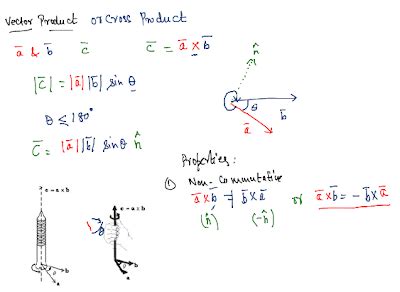 Vector Product or Cross Product
a̅ & b̅ c̅ c̅ = a̅ × b̅
|c̅| = |a̅| |b̅| sin θ
θ ≤ 180°
c̅ = |a̅| |b̅| sin θ n̂
n̂
θ
a̅
b̅
Properties:
① Non-Commutative
a̅ × b̅ ≠ b̅ × a̅ or a̅ × b̅ = - b̅ × a̅
(n̂) (-n̂)
c = a × b
b
a
c = a × b
b
a